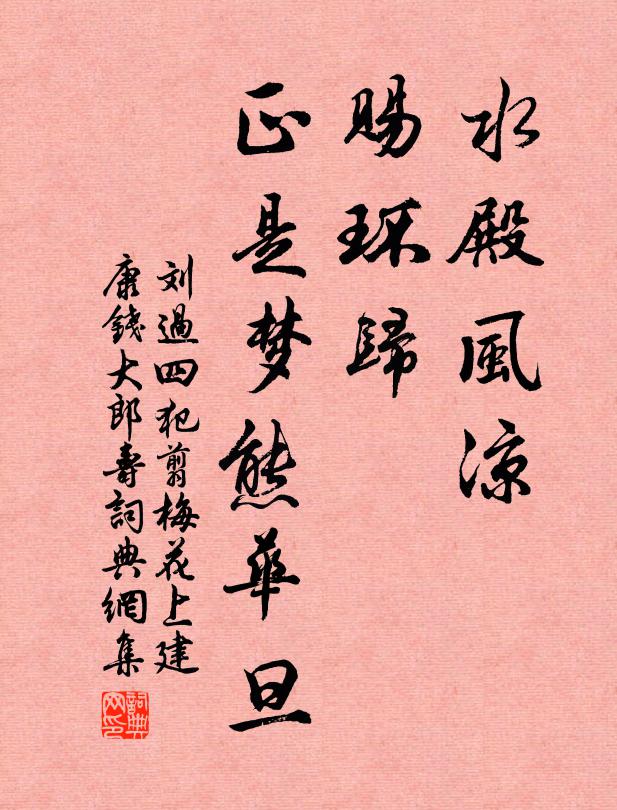 水殿風凉
赐环歸
正是梦熊華旦
刘過四犯剪梅花上建
康錢大郎壽詞典網集
詞典网印